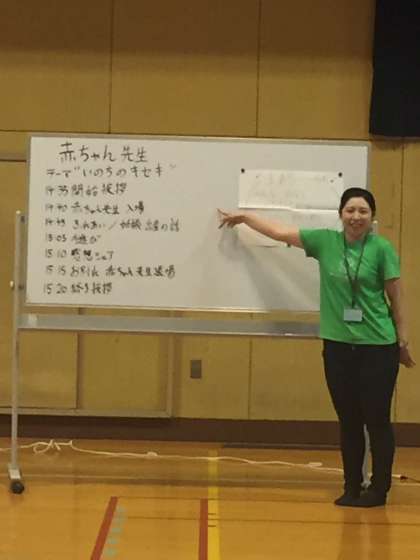 赤ちゃん先生
テーマ"いのちのキセキ"
14:35 開始 挨拶
14:40 赤ちゃん先生 入場
14:45 ふれあい/妊娠 出産の話
15:05 手遊び
15:10 感想シェア
15:15 お別れ 赤ちゃん先生退場
15:20 終了 挨拶